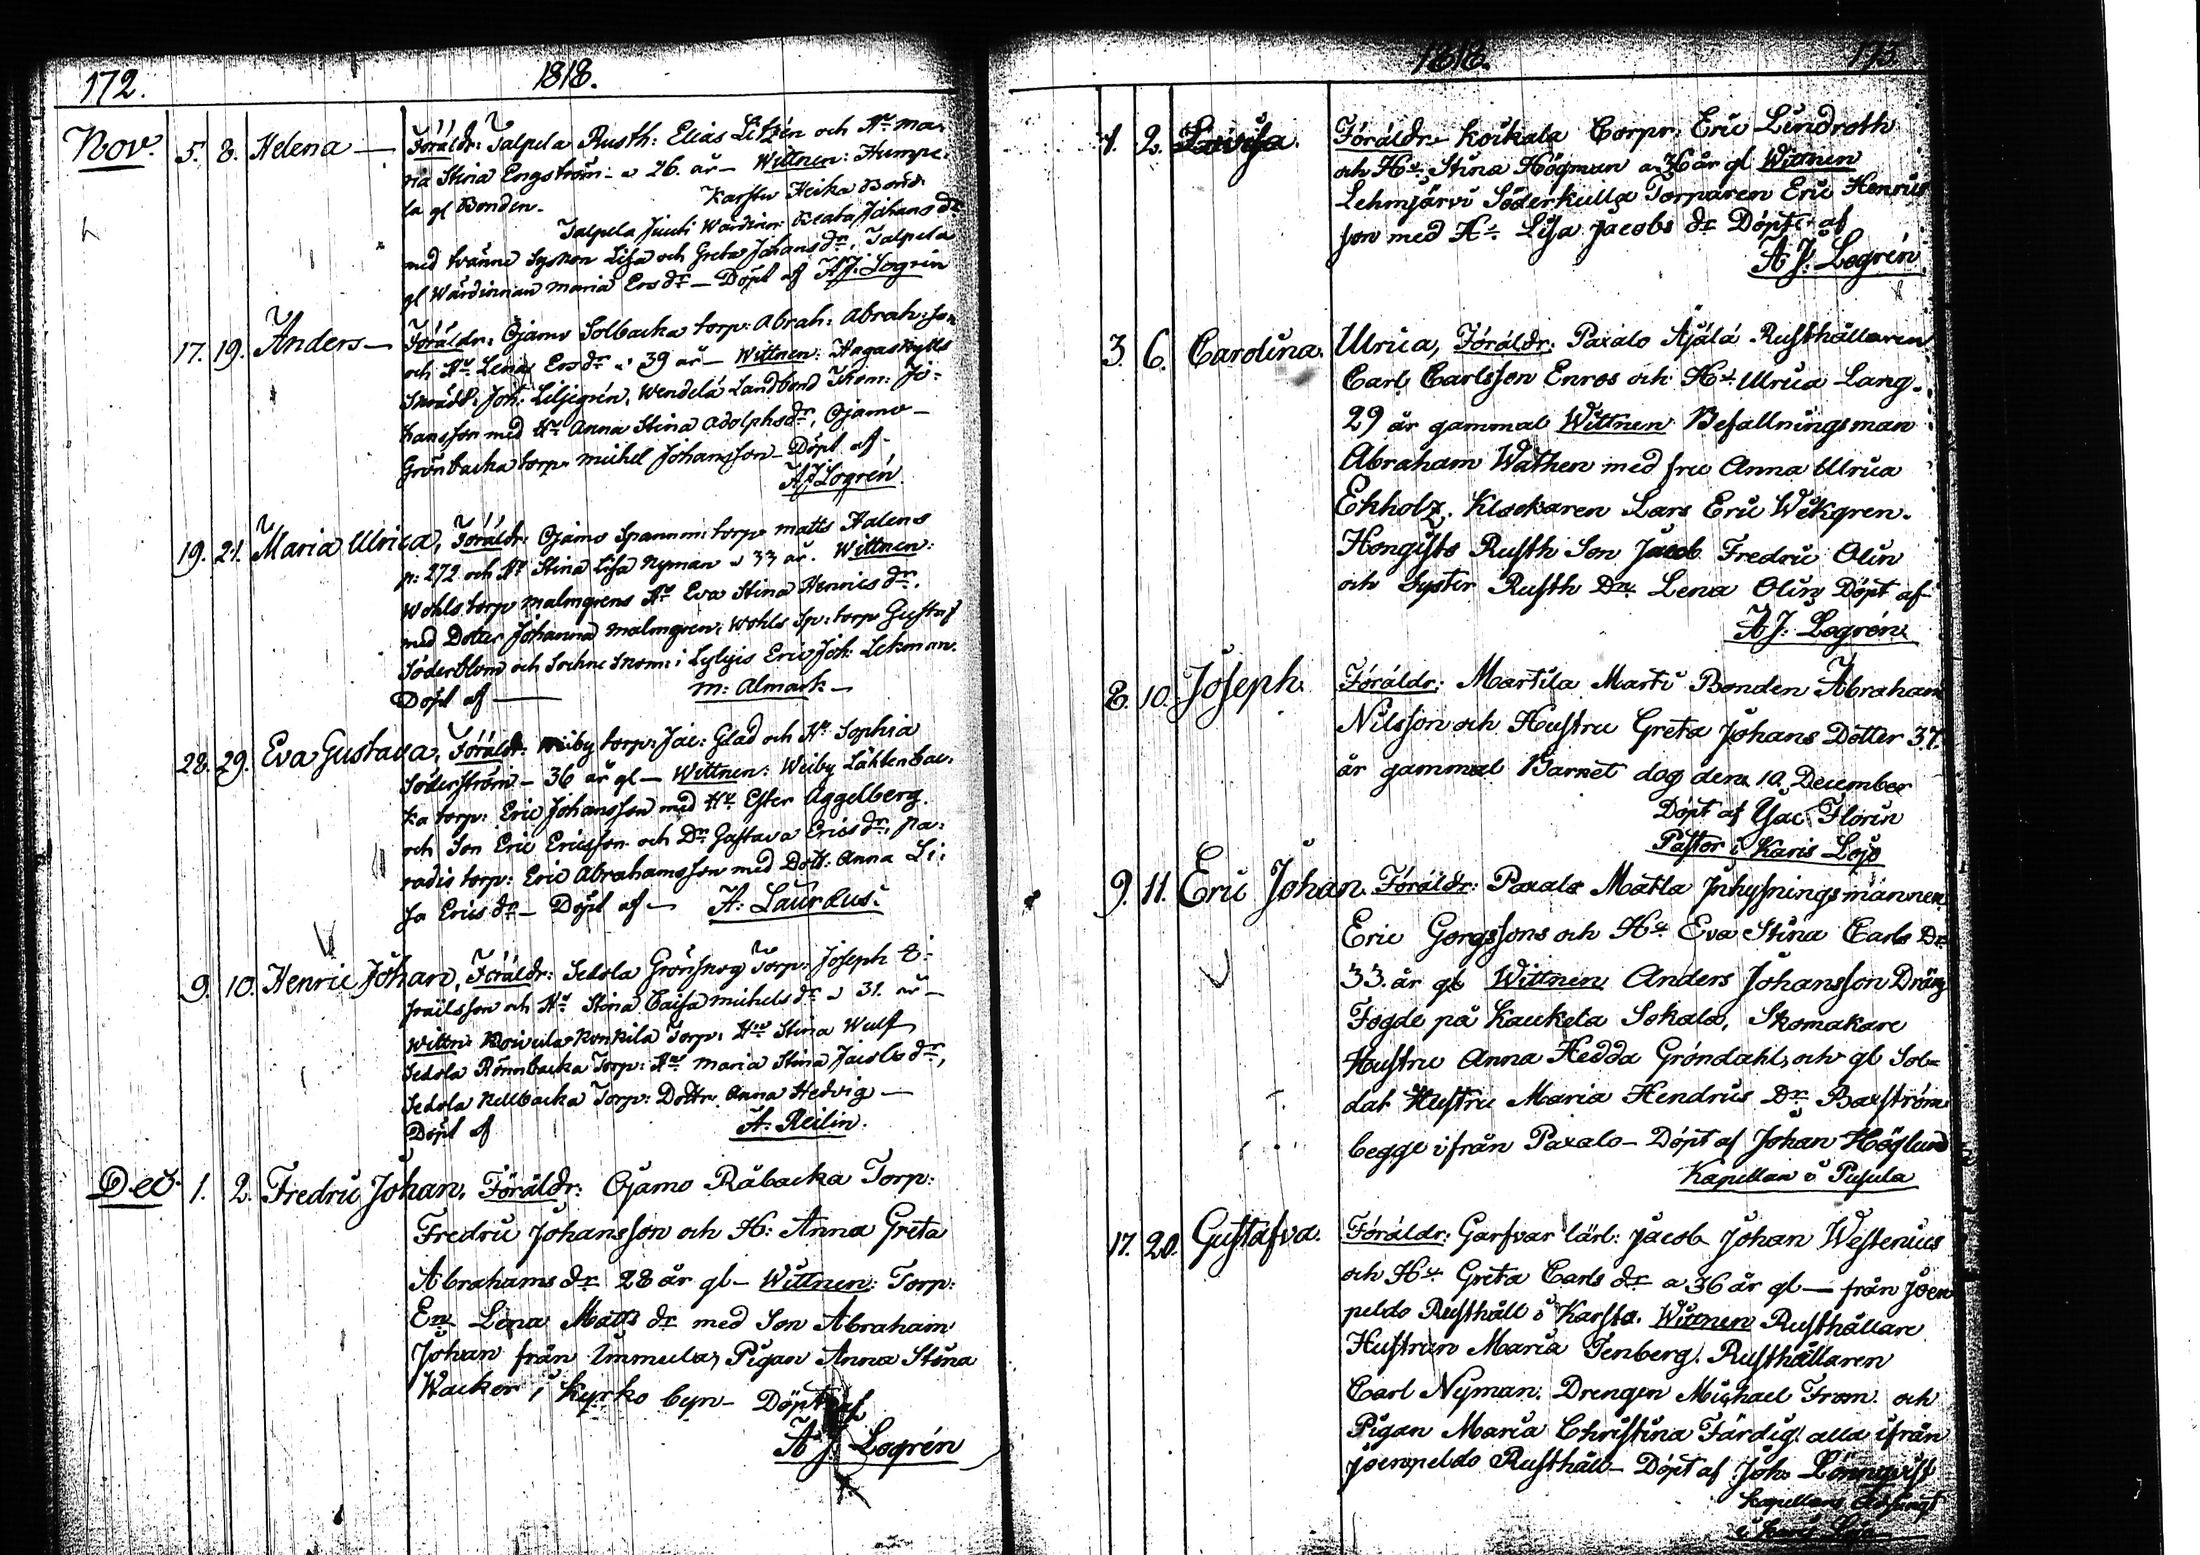 172. 1818.
Nov. 5. 8. Helena — Föräldr: Talpela Rusth: Elias Litzén och Hr Ma-
ria Stina Engström - a 26. år - Wittnen: Humpe-
la gl Bonden. Karstu Heika Bond.
Talpela Juuti Wärdinn: Beata Johans dr
med tvänne Syskon Lisa och Greta Johans dr, Talpela
gl Wärdinnan Maria Ers dr — Döpt af A J: Logrén
17. 19. Anders — Föräldr: Ojamo Solbacka torp: Abrah: Abrah: son
och Hr Lena Ers dr a 39 år — Wittnen: Hagaskylls
Skrädd: Joh: Liljegrén, Wendelä Landbond Thom: Jo-
hansson med Hr Anna Stina Adolphs dr, Ojamo —
Grönbacka torp. Michel Johansson — Döpt af —
A J Logrén.
19. 21. Maria Ulrica, Föräldr: Ojamo Spannm: torp Matts Halens
p: 272 och Hr Stina Lisa Nyman a 33 år. Wittnen:
Wohls torp Malmgrens Hr Eva Stina Henrics dr.
med Dotter Johanna Malmgren: Wohls Sp: torp Gustaf
Söderblom och Sochne Skom: i Lylyis Eric Joh: Lekman.
Döpt af — M: Almark —
28. 29. Eva Gustava, Föräldr: Weiby torp: Jac: Glad och Hr Sophia
Söderström — 36 år gl — Wittnen: Weiby Lähtenbac-
ka torp: Eric Johansson med Hr Ester Aggelberg.
och Son Eric Ericsson och Dr: Gustava Erics dr, Pa-
radis torp: Eric Abrahamsson med Dott: Anna Li-
sa Erics dr — Döpt af — A: Lauræus.
9. 10. Henric Johan, Föräldr: Sedola Grönskog Torp: Joseph E-
srailsson och Hr Stina Caisa Michels dr a 31. år —
Wittn: Koivula Konkila Torp: Hr Stina Wulf
Sedola Rönnbacka Torp: Hr Maria Stina Jacobs dr,
Sedola Kellbacka Torp: Dottr Anna Hedvig —
Döpt af A. Reilin.
Dec. 1. 2. Fredric Johan, Föräldr: Ojamo Råbacka Torp:
Fredric Johansson och H: Anna Greta
Abrahams dr 28 år gl — Wittnen: Torp:
En Lena Matts dr med Son Abraham
Johan från Immula, Pigan Anna Stina
Wacker i Kyrko byn — Döpt af
A J. Logrén
1818. 173
1. 2. Lovisa. Föräldr — Koikala Corpr: Eric Lindroth
och Hu Stina Högman a. 36 år gl Wittnen
Lehmjärvi Söderkulla Torparen Eric Henrics
son med Hu Lisa Jacobs dr Döpt: af
A J: Logrén
3. 6. Carolina. Ulrica, Föräldr: Paxalo Ajälä Rusthållaren
Carl Carlsson Enros och Hu Ulrica Lang.
29 år gammal Wittnen Befallningsman
Abraham Wathen med fru Anna Ulrica
Ekholz. Klockaren Lars Eric Wikgren.
Hongisto Rusth Son Jacob Fredric Olin
och Syster Rusth Dr Lena Olin Döpt af
A J: Logrén.
8. 10. Joseph. Föräldr: Martila Marti Bonden Abraham
Nilsson och Hustru Greta Johans Dotter 37.
år gammal Barnet dog den 10. December
Döpt af Isac Florin
Pastor i Karis Lojo
9. 11. Eric Johan. Föräldr: Paxalo Matla Inhysningsmannen
Eric Gorgssons och Hu Eva Stina Carls Dr
33. år gl Wittnen Anders Johansson Dräng
Fogde på Kaukela Sokala, Skomakare
Hustru Anna Hedda Gröndahl, och gl Sol-
dat Hustru Maria Hendrics Dr Baxström
begge ifrån Paxalo — Döpt af Johan Höglund
Kapellan i Pusula
17. 20. Gustafva. Föräldr: Garfvar lärl: Jacob Johan Westenius
och Hu Greta Carls dr a 36 år gl — från Joen
peldo Rusthåll i Karstu. Wittnen Rusthållare
Hustrun Maria Tenberg. Rusthållaren
Carl Nyman. Drengen Michael From. och
Pigan Maria Christina Färdig. alla ifrån
Joenpeldo Rusthåll — Döpt af Joh: Lönnqvist
Kapellans
i Karis Lojo